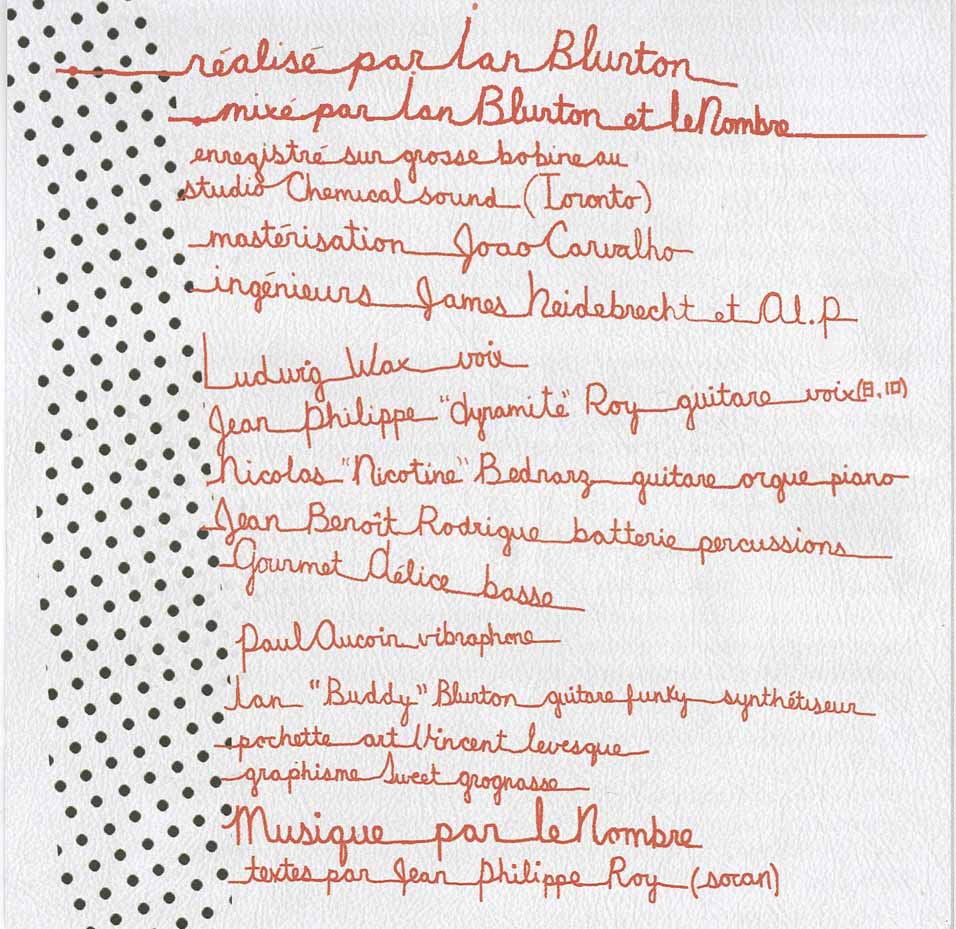 réalisé par Ian Blurton
mixé par Ian Blurton et le Nombre
enregistré sur grosse bobine au
studio Chemical sound (Toronto)
mastérisation Joao Carvalho
ingénieurs James heidebrecht et Al.P
Ludwig Wax voix
Jean philippe "dynamite" Roy guitare voix(8,10)
Nicolas "Nicotine" Bednarz guitare orgue piano
Jean Benoît Rodrigue batterie percussions
Gourmet délice basse
paul Aucoin vibraphone
Ian "Buddy" Blurton guitare funky synthétiseur
pochette art Vincent levesque
graphisme Sweet grognasse
Musique par le Nombre
textes par Jean philippe Roy (socan)